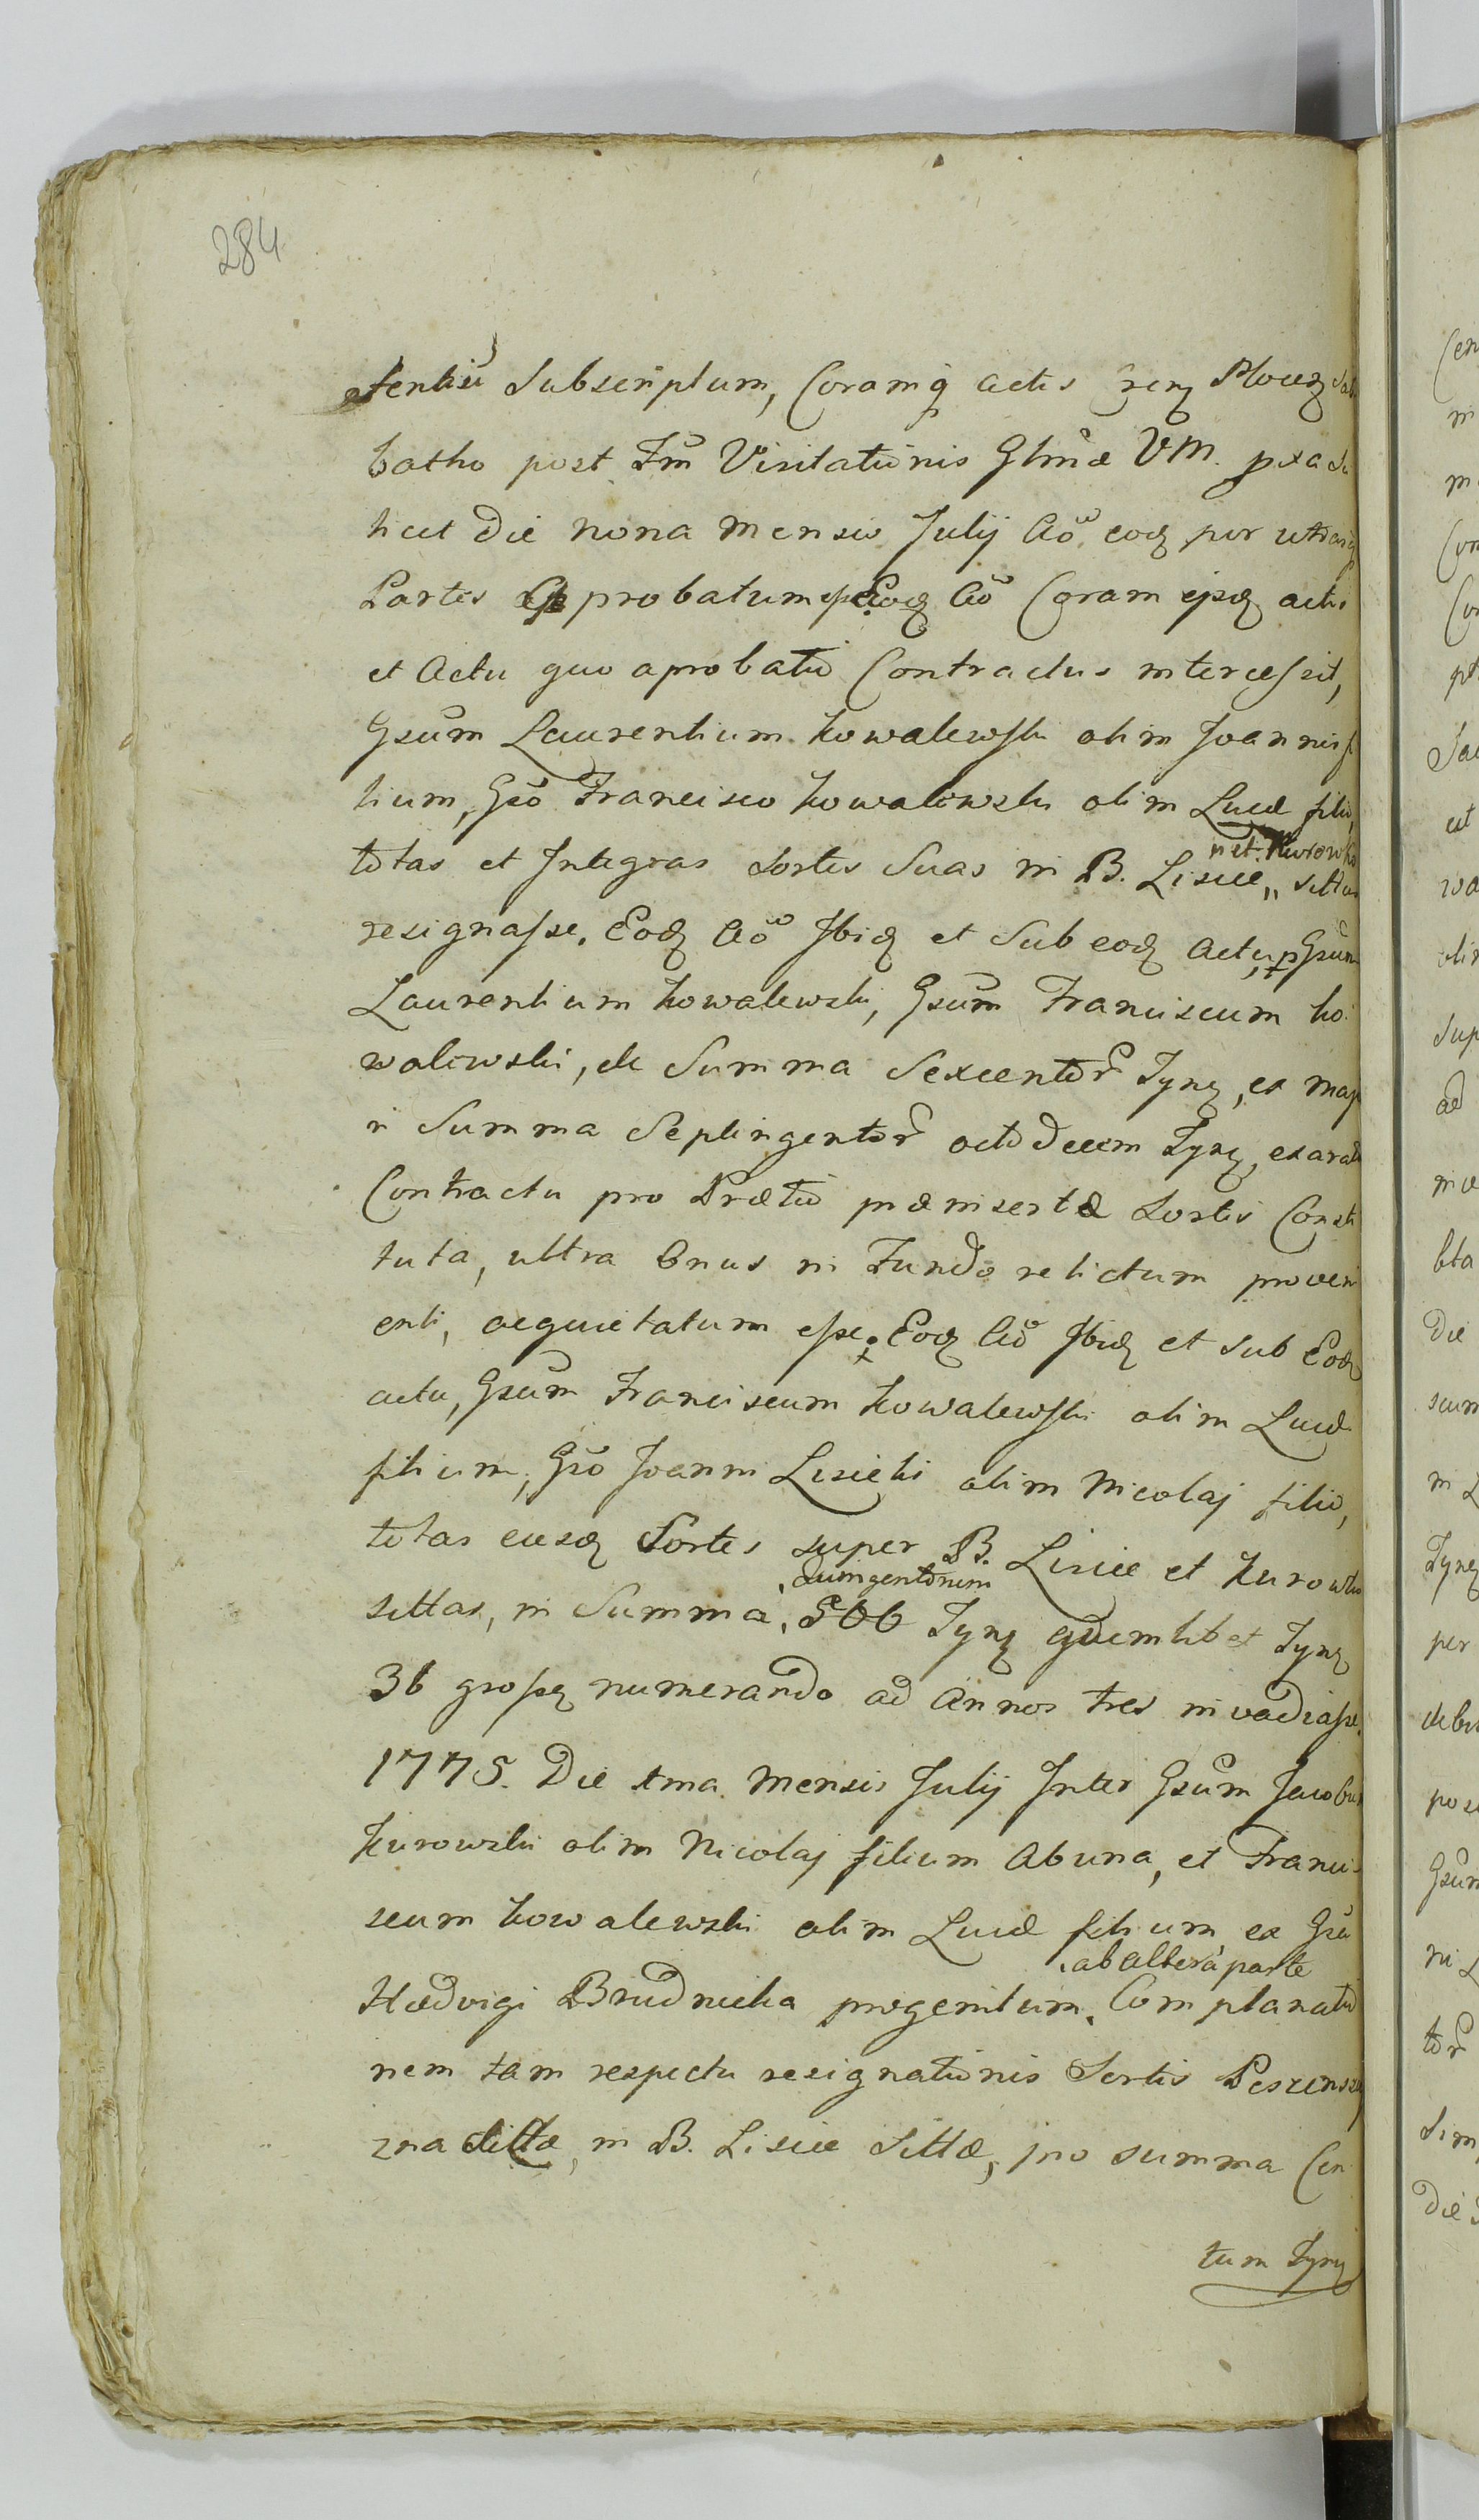 284
tentiū Subscriptum, Coramq̢ actis Plocen̄ Sab
batho post Fm̄ Visitationis Glm̄æ VM.
licet die nona mensis Julij Aō eodȝ per utrasq̢
Partes approbatum eſse. Eodȝ Aō Coram ejsdȝ actis
et Actu quo aprobatio Contractus interceſsit,
Gsūm Laurentium Kowalewſki olim Joannis fi
lium, Gsō Francisco Kowalewski olim Lucæ filio,
in et Kurowko
totas et Integras Sortes Suas in B. Lisice „ sittas
resignaſse. Eodȝ Aō Ibidȝ et Sub eodȝ actu, p Gsūm
Laurentium Kowalewski, Gsūm Franciscum Ko
walewski, de Summa Sexcentor̄ Tynȝ, ex maj
in Summa Septingentor̄ octodecem Tynȝ, exarato
Contractu pro Prætio præinsertæ Sortis Consti
tuta, ultra Onus in Fundo relictum proveni
enti, aequietatum eſse. Eodȝ Aō Ibidȝ et Sub Eodȝ
actu, Gsūm Franciscum Kowalewſki olim Lucæ
filium, Gsō Joanni Lisicki olim Nicolaj filio,
totas easdȝ Sortes super B. Lisice et Kurowko
quingentorum
sittas, in Summa, 500 Tynȝ quemlibet Tynȝ
36 groſsȝ numerando ad Annos tres invadiaſse.
1775. Die 1ma Mensis Julij Inter Gsūm Jacobum
Kurowski olim Nicolaj filium Abuna, et Franci
scum Kowalewski olim Lucæ filium ex Gsa
ab altera parte
Hædvigi Brudnicka progenitum, Complanatio
nem tam respectu resignationis Sortis
zna dictæ, in B. Lisice Sittæ, pro summa Cen
tum Tynȝ